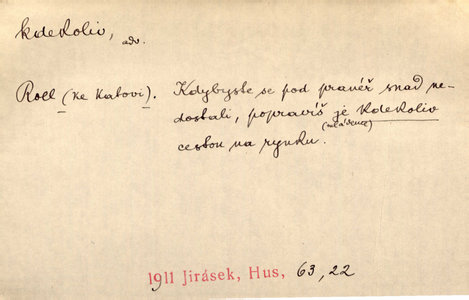 kdekoliv, adv.
Roll (ke katovi). Kdybyste se pod pranéř snad ne-
dostali, popravíš je kdekoliv
(mládence)
cestou na rynku.
1911 Jirásek, Hus, 63, 22